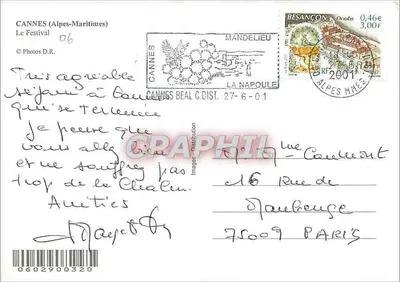 CANNES (Alpes-Maritimes)
Le Festival
© Photos D.R.
06
CANNES
MANDELIEU
LA NAPOULE
CANNES BEAL C.DIST. 27-6-01
BESANÇON Doubs
0,46€
3,00F
RF
2001
ALPES MMES
Très agréable
séjour à Cannes
qui se termine
Je pense que
vous allez bien
et ne souffrez pas
trop de la Chaleur
Amitiés
16 Rue de
Maubeuge
75009 PARIS
0602900320
Image Position
GRAPHIC